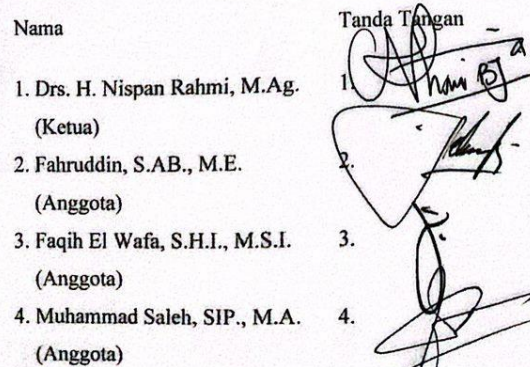 Nama Tanda Tangan
1. Drs. H. Nispan Rahmi, M.Ag. 1.
(Ketua)
2. Fahruddin, S.AB., M.E. 2.
(Anggota)
3. Faqih El Wafa, S.H.I., M.S.I. 3.
(Anggota)
4. Muhammad Saleh, SIP., M.A. 4.
(Anggota)